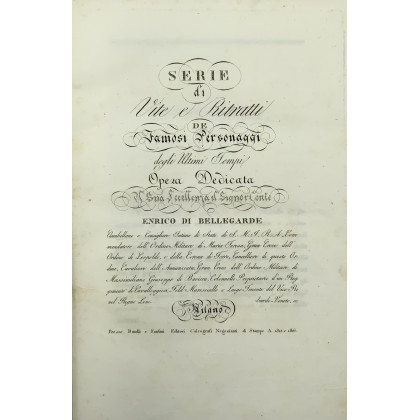 SERIE
di
Vite e Ritratti
DE
Famosi Personaggi
degli Ultimi Tempi
Opera Dedicata
A Sua Eccellenza il Signor Conte
ENRICO DI BELLEGARDE
Ciambellano e Consigliere Intimo di Stato di S. M. I. R. A. Com-
mendatore dell'Ordine Militare di Maria Teresa, Gran Croce dell'
Ordine di Leopoldo, e della Corona di Ferro, Cancelliere di questo Or-
dine, Cavaliere dell'Annunziata, Gran Croce dell'Ordine Militare di
Massimiliano Giuseppe di Baviera, Colonnello Proprietario d'un Reg-
gimento di Cavalleggieri, Feld-Maresciallo e Luogo-Tenente del Vice-Re
nel Regno Lom- bardo-Veneto, ec.
Milano
Presso Batelli e Fanfani Editori Calcografi Negozianti di Stampe A. 1815 e 1818.